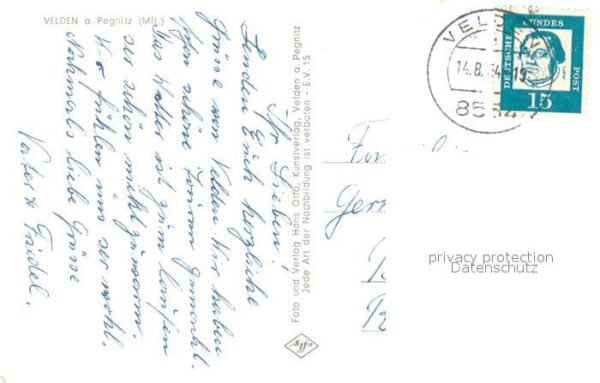 VELDEN a. Pegnitz (Mfr.)
Ihr Lieben!
Senden Euch herzliche
Grüsse von Velden. Wir haben
schon schöne Touren gemacht.
Das Wetter ist zum laufen
ser schön nicht zu warm.
Wir fühlen uns ser wohl.
Nochmals liebe Grüsse
Vater u. Friedel.
Foto und Verlag Hans Otto, Kunstverlag, Velden a. Pegnitz
Jede Art der Nachbildung ist verboten - E.V. 15
VELDEN
14.8.64
DEUTSCHE BUNDESPOST
15
Ger
privacy protection
Datenschutz